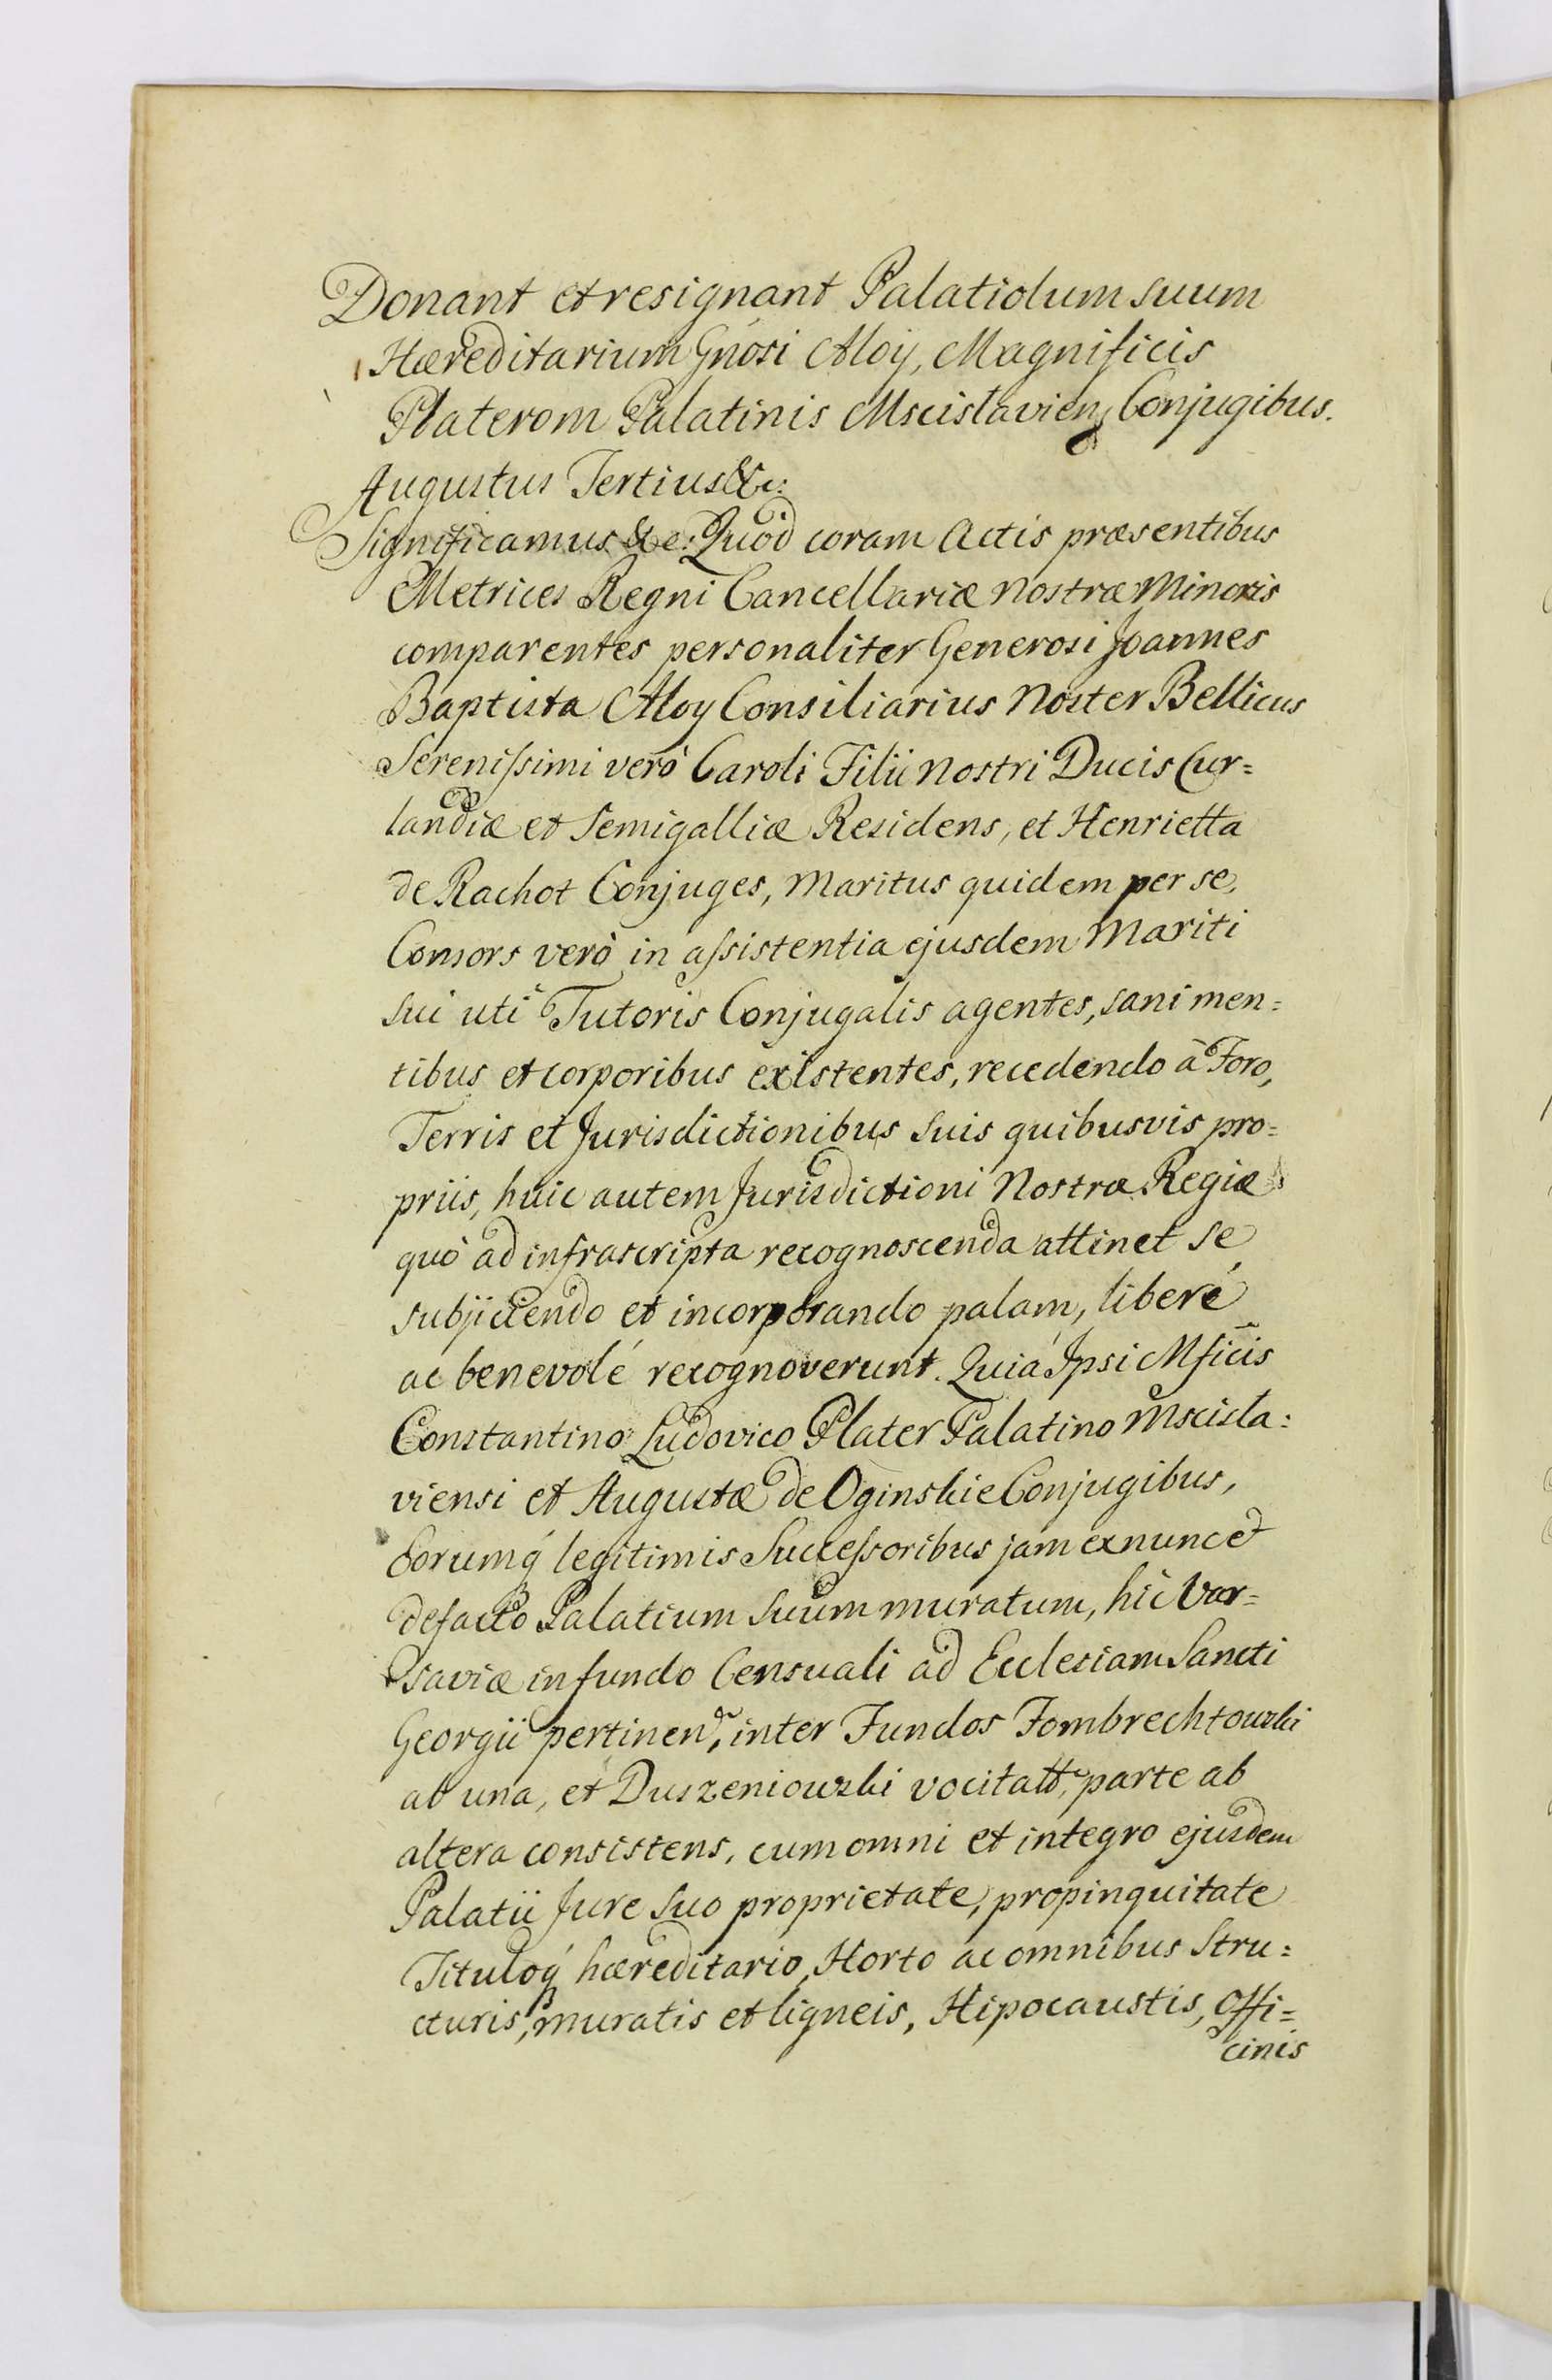 Donant et resignant Palatiolum suum
Hæreditarium Gńosi Aloy, Magnificis
Platerom Palatinis Mscislavien, Conjugibus.
Augustus Tertius &c:
Significamus &c: Quod coram Actis præsentibus
Metrices Regni Cancellariæ nostræ Minoris
comparentes personaliter Generosi Joannes
Baptista Aloy Consiliarius Noster Bellicus
Serenissimi verò Caroli Filii nostri Ducis Cur=
landiæ et Semigalliæ Residens, et Henrietta
de Rachot Conjuges, Maritus quidem per se,
Consors verò in assistentia ejusdem Mariti
sui uti Tutoris Conjugalis agentes, sani men=
tibus et corporibus existentes, recedendo à Foro,
Terris et Jurisdictionibus suis quibusvis pro=
priis, huic autem Jurisdictioni Nostræ Regiæ
quò ad infrascripta recognoscenda attinet se
subjiciendo et incorporando palam, liberé
ac benevolé recognoverunt. Quia Ipsi Mficis
Constantino Ludovico Plater Palatino Mscisla=
viensi et Augustæ de Oginskie Conjugibus,
Eorumq́ legitimis Successoribus jam ex nunc et
defacto Palatium suum muratum, hic Var=
saviæ in fundo Censuali ad Ecclesiam Sancti
Georgii pertinen, inter Fundos Fombrechtowski
ab una, et Duszeniowski vocitatt, parte ab
altera consistens, cum omni et integro ejusdem
Palatii Jure suo proprietate, propinquitate
Tituloq́ hæreditario, Horto ac omnibus Stru=
cturis, muratis et ligneis, Hipocaustis, Offi=
cinis